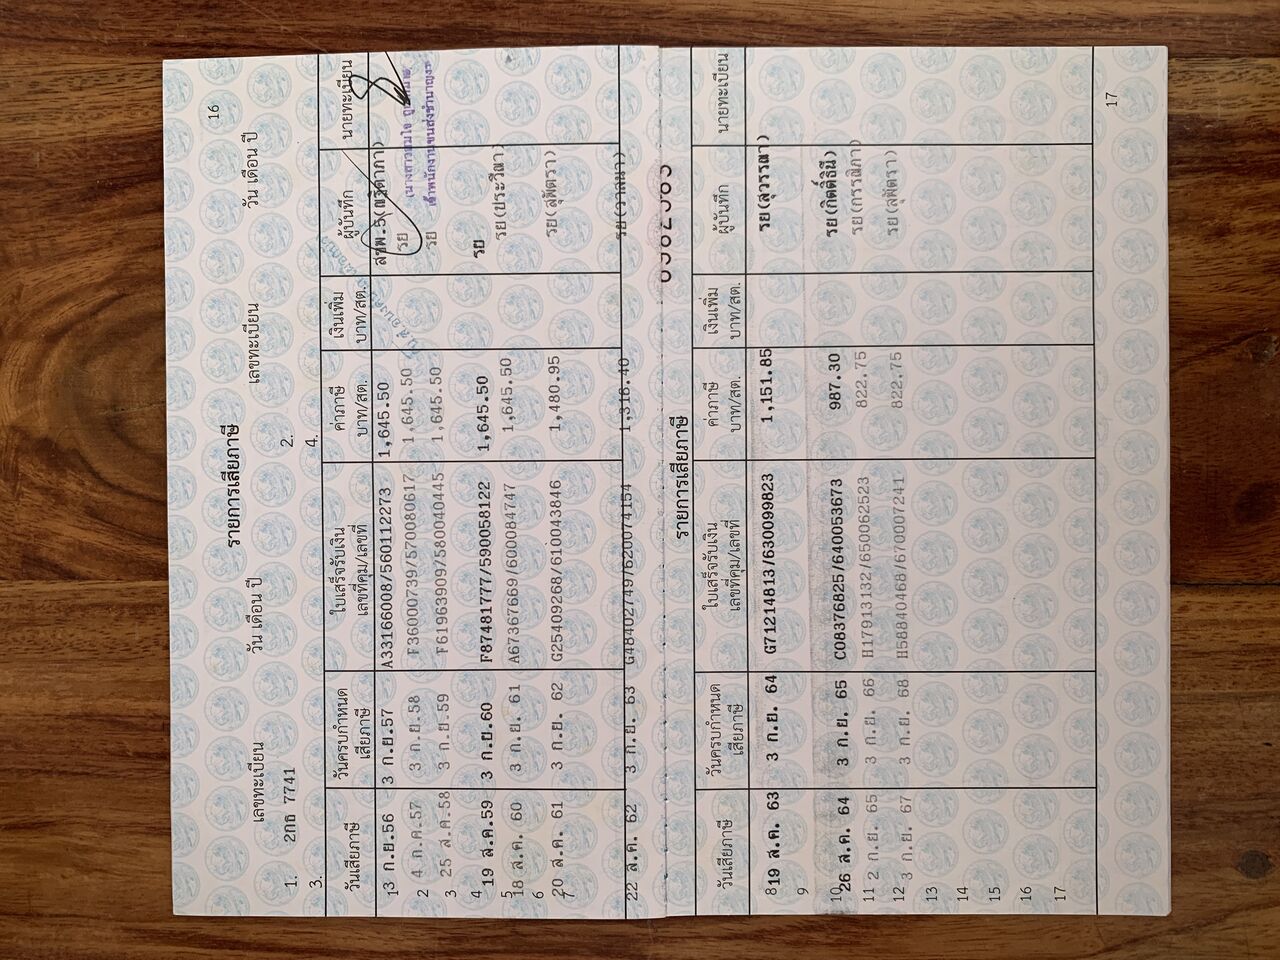 16
รายการเสียภาษี
เลขทะเบียน วัน เดือน ปี เลขทะเบียน วัน เดือน ปี
1. 2กธ 7741 2.
3. 4.
วันเสียภาษี วันครบกำหนดเสียภาษี ใบเสร็จรับเงิน เลขที่คุม/เลขที่ ค่าภาษี บาท/สต. เงินเพิ่ม บาท/สต. ผู้บันทึก นายทะเบียน
13 ก.ย.56 3 ก.ย.57 A33166008/560112273 1,645.50 สขพ.5
2 4 ก.ค.57 3 ก.ย.58 F36000739/570080617 1,645.50 รย
3 25 ส.ค.58 3 ก.ย.59 F61963909/580040445 1,645.50 รย
4 19 ส.ค.59 3 ก.ย.60 F87481777/590058122 1,645.50 รย
5 18 ส.ค. 60 3 ก.ย. 61 A67367669/600084747 1,645.50 รย(ประวีณา)
6
7 20 ส.ค. 61 3 ก.ย. 62 G25409268/610043846 1,480.95 รย(สุพัตรา)
22 ส.ค. 62 3 ก.ย. 63 G48402749/620074154 1,316.40 รย(วาสนา)
รายการเสียภาษี
วันเสียภาษี วันครบกำหนดเสียภาษี ใบเสร็จรับเงิน เลขที่คุม/เลขที่ ค่าภาษี บาท/สต. เงินเพิ่ม บาท/สต. ผู้บันทึก นายทะเบียน
8 19 ส.ค. 63 3 ก.ย. 64 G71214813/630099823 1,151.85 รย(สุวรรณา)
9
10 26 ส.ค. 64 3 ก.ย. 65 C08376825/640053673 987.30 รย(กิตติ์ธินี)
11 2 ก.ย. 65 3 ก.ย. 66 H17913132/650062523 822.75 รย(กรรณิภา)
12 3 ก.ย. 67 3 ก.ย. 68 H58840468/670007241 822.75 รย(สุพัตรา)
13
14
15
16
17
17